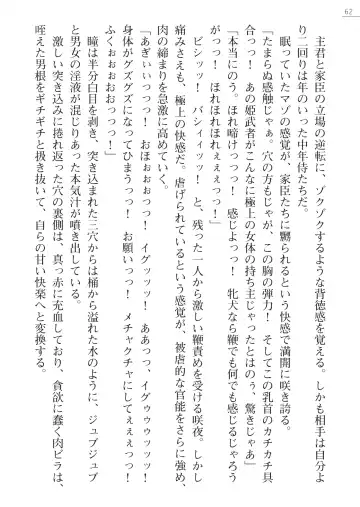 62
　主君と家臣の立場の逆転に、ゾクゾクするような背徳感を覚える。しかも相手は自分よ
り二回りは年のいった中年侍たちだ。
　眠っていたマゾの感覚が、家臣たちに嬲られるという快感で満開に咲き誇る。
「たまらぬ感触じゃぁ。穴の方もじゃが、この胸の弾力！　そしてこの乳首のカチカチ具
合っっ！　あの姫武者がこんなに極上の女体の持ち主じゃったとはのぅ、驚きじゃあ」
「本当にのう。ほれ啼けっっっ！　感じよっっ！　牝犬なら鞭でも何でも感じるじゃろう
がっっっ！　ほれほれほれぇぇぇっっ！」
　ビシッッ！　バシィィッッ！　と、残った一人から激しい鞭責めを受ける咲夜。しかし
痛みさえも、極上の快感だ。虐げられているという感覚が、被虐的な官能をさらに強め、
肉の締まりを急激に高めていく。
「あぎぃぃっっっ！　おほぉぉっっ！　イグッッッ！　ああっっ、イグゥゥゥッッッ！
身体がグズグズになってひまうっっ！　お願いっっ！　メチャクチャにしてぇぇぇっっ！
ふくぉぉぉおおっっっ！」
　瞳は半分白目を剥き、突き込まれた三穴からは桶から溢れた水のように、ジュブジュブ
と男女の淫液が混じりあった本気汁が噴き出している。
　激しい突き込みに捲れ返った穴の裏側は、真っ赤に充血しており、貪欲に蠢く肉ビラは、
咥えた男根をギチギチと扱き抜いて、自らの甘い快楽へと変換する。